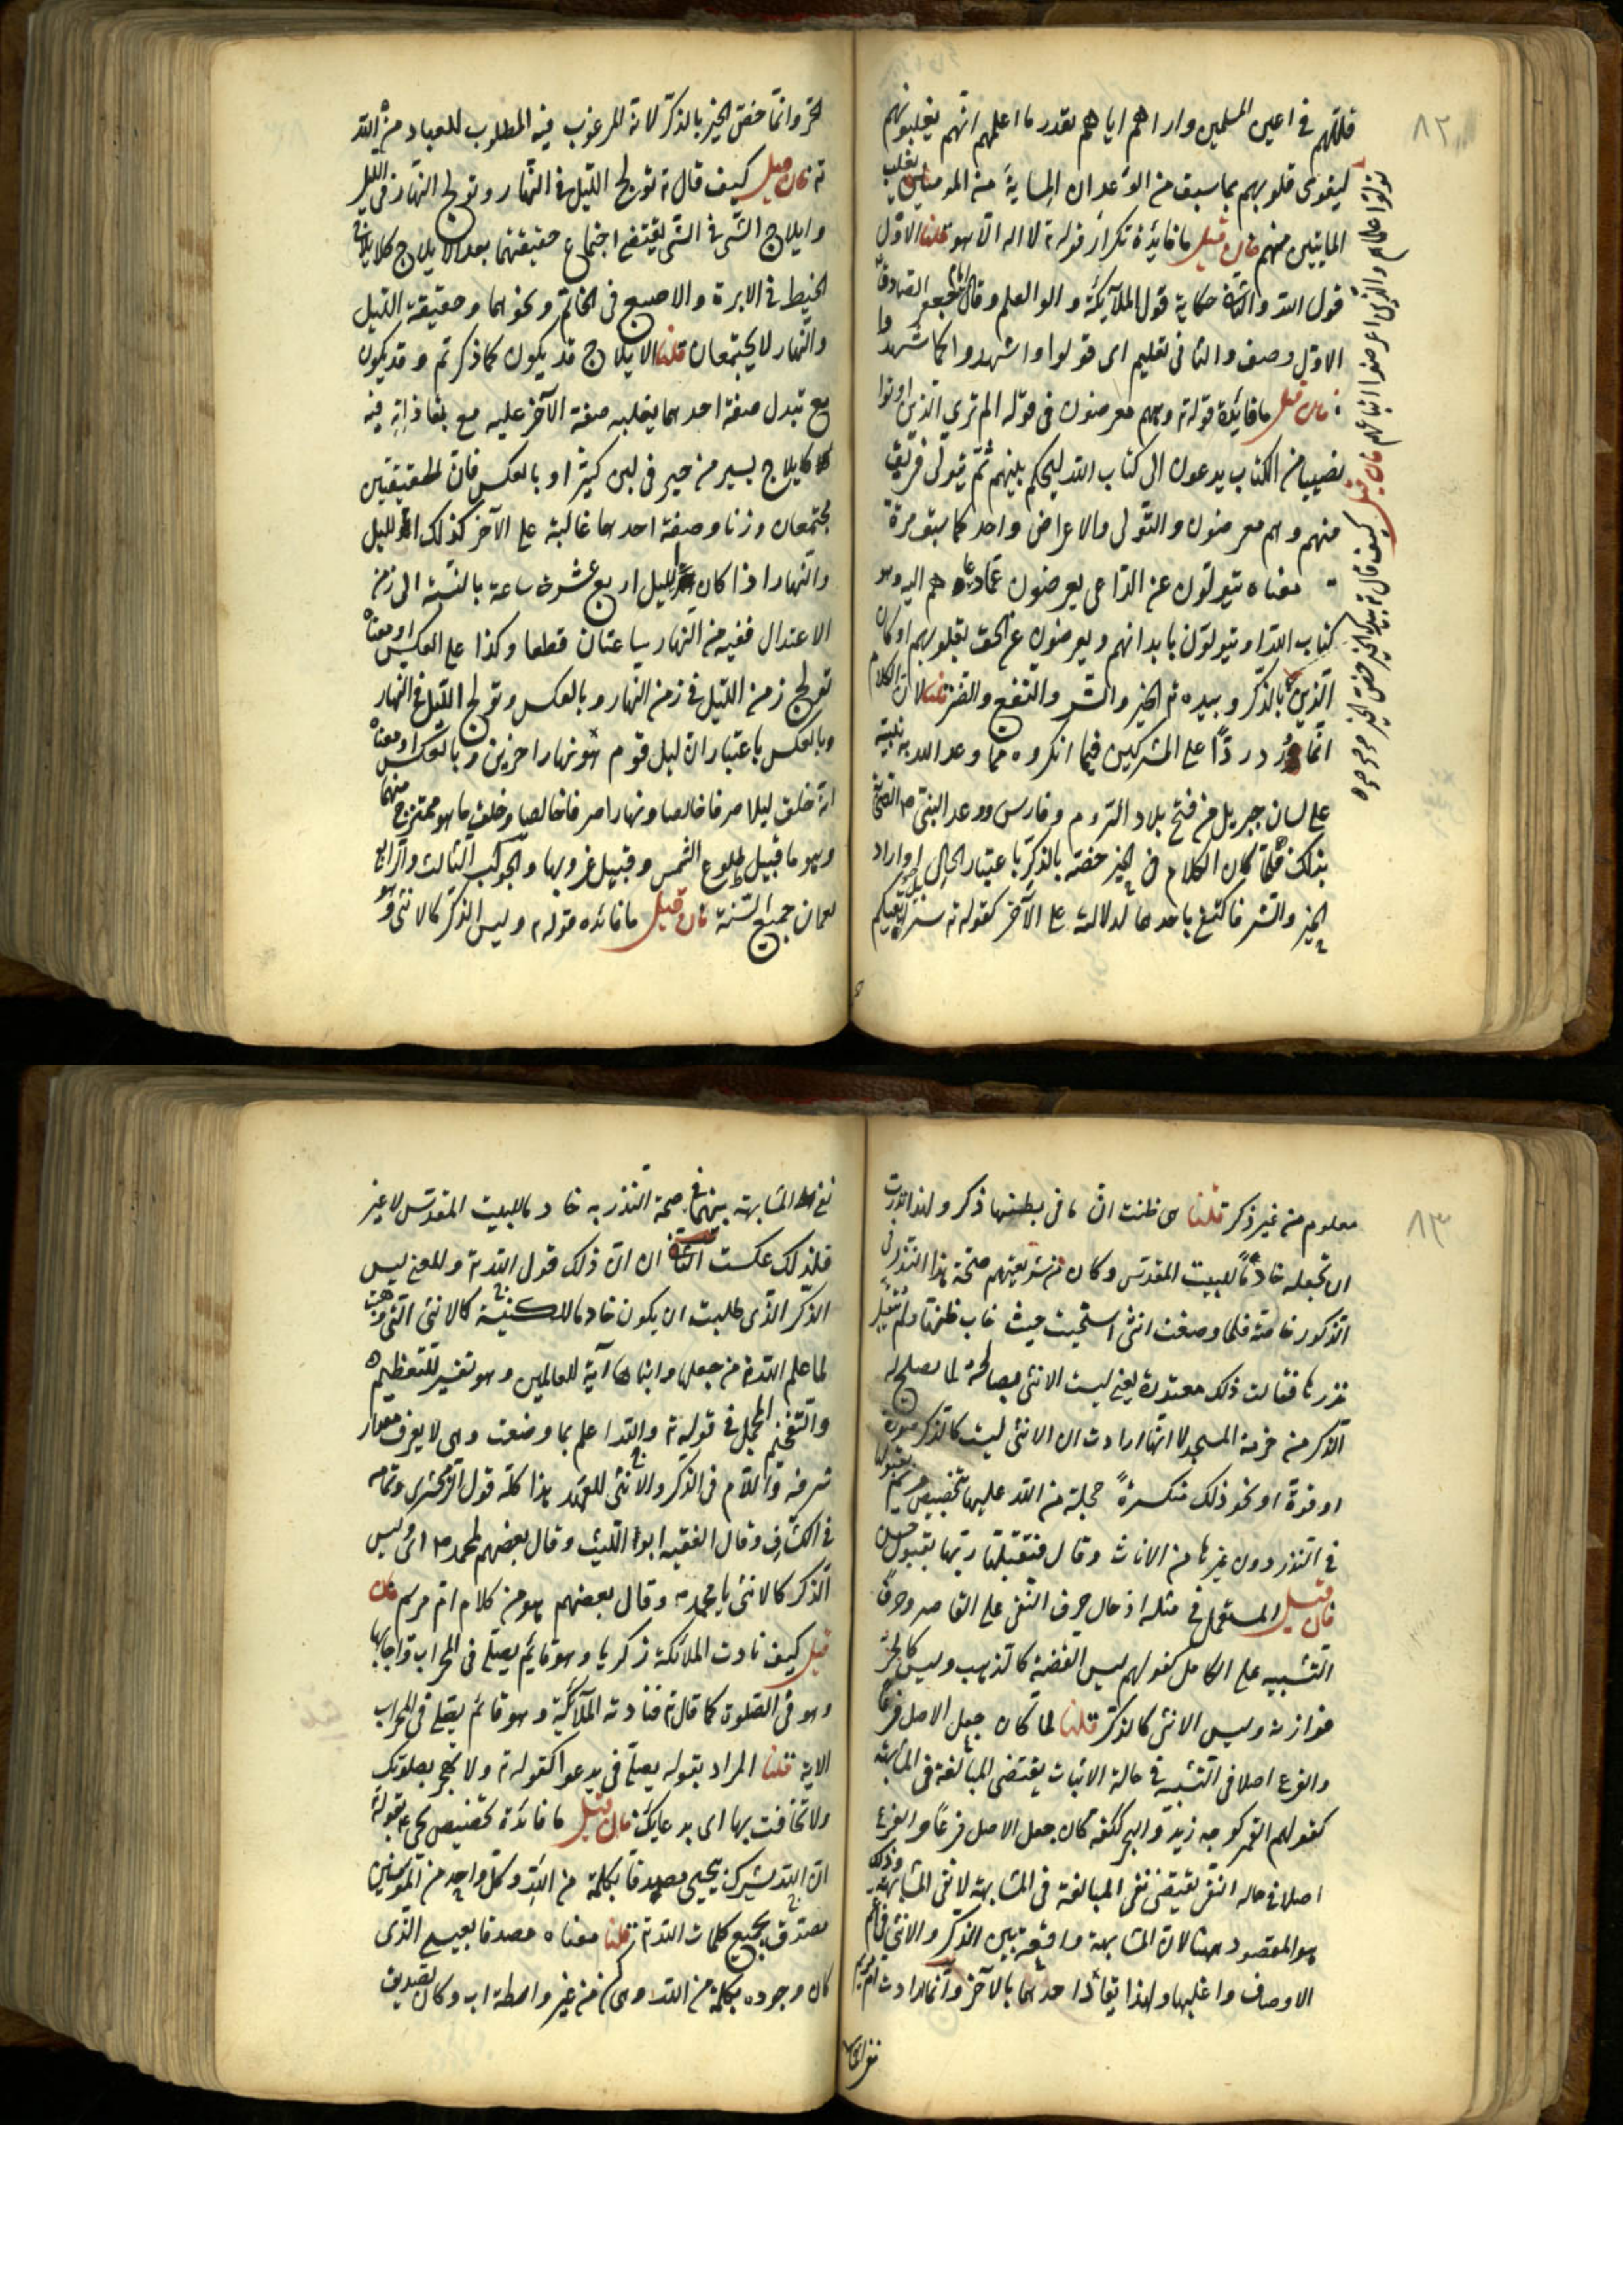 ٨٢
قللهم فى اعين المسلمين واراهم اياهم بقدر ما اعلمهم انهم يغلبونهم
ليقوى قلوبهم بما سبق من الوعد ان المائة من المومنين يغلب
المائتين منهم فان قيل ما فائدة تكرار قوله تع لا اله الا هو قلنا الاول
قول الله والثانى حكاية قول الملائكة واولوا العلم وقال جعفر الصادق
الاول وصف والثانى تعليم اى قولوا واشهدوا كما شهدوا
فان قيل ما فائدة قوله تع وهم معرضون فى قوله الم ترى الذين اوتوا
نصيبا من الكتاب يدعون الى كتاب الله ليحكم بينهم ثم يتولى فريق
منهم وهم معرضون والتولى والاعراض واحد كما سبق مرة
معناه يتولون عن الداعى يعرضون عما دعاهم اليه وهو
كتاب الله او يتولون بابدانهم ويعرضون عن الحق بقلوبهم او كان
الذين بالذكر وبيده تع الخير والشر والنفع والضر قلنا لان الكلام
انما ورد ردا على المشركين فيما انكروه مما وعد الله به نبيه
على لسان جبريل من فتح بلاد الروم وفارس ووعد النبى ص الصحابة
بذلك فلما كان الكلام فى الخير خصه بالذكر باعتبار الحال او اراد
الخير والشر فاكتفى باحدهما لدلالته على الآخر كقوله تع سرابيل تقيكم
تولوا علماؤهم والذين اعرضوا اتباعهم فان قيل كيف قال تع بيدك الخير خص الخير
الحر وانما خص الخير بالذكر لانه المرغوب فيه المطلوب للعباد من الله
تع فان قيل كيف قال تع تولج الليل فى النهار وتولج النهار فى الليل
وايلاج الشى فى الشى يقتضى اجتماع حقيقتهما بعد الايلاج كايلاج
الخيط فى الابرة والاصبع فى الخاتم ونحوهما وحقيقة الليل
والنهار لا يجتمعان قلنا الايلاج قد يكون كما ذكرتم وقد يكون
مع تبدل صفة احدهما بغلبة صفة الآخر عليه مع بقاء ذاته فيه
كايلاج يسير من خير فى لبن كثير او بالعكس فان الحقيقتين
مجتمعان وزنا وصفة احدهما غالبة على الآخر كذلك الليل
والنهار اذا كان الليل اربع عشرة ساعة بالنسبة الى زمن
الاعتدال ففيه من النهار ساعتان قطعا وكذا على العكس او معناه
تولج زمن الليل فى زمن النهار وبالعكس وتولج الليل فى النهار
وبالعكس باعتبار ان ليل قوم هو نهار اخرين وبالعكس او معناه
انه خلق ليلا صرفا خالصا ونهارا صرفا خالصا وخلق ما هو ممتزج منهما
وهو ما قبيل طلوع الشمس وقبيل غروبها والجواب الثالث والرابع
يعمان جميع السنة فان قيل ما فائده قوله تع وليس الذكر كالانثى وهو
٨٣
معلوم من غير ذكر قلنا هى ظنت ان ما فى بطنها ذكر ولهذا نذرت
ان تجعله خادما للبيت المقدس وكان من شريعتهم صحة هذا النذر فى
الذكور خاصة فلما وضعت انثى استحيت حيث خاب ظنها ولم يتقبل
نذرها فقالت ذلك معتذرة يعنى ليست الانثى بصالحة لما يصلح له
الذكر من خدمة المسجد لا انها ارادت ان الانثى ليست كالذكر صورة
او قوة او نحو ذلك منكسرة خجلة من الله عليها بتخصيص مريم بقبولها
فى النذر دون غيرها من الاناث وقال فتقبلها ربها بقبول حسن
فان قيل المستعمل فى مثله ادخال حرف النفى على القاصر وحرف
التشبيه على الكامل كقولهم ليس الفضة كالذهب وليس كالخز
فوازنه وليس الانثى كالذكر قلنا لما كان جعل الاصل فرعا
والفرع اصلا فى التشبيه فى حالة الاثبات يقتضى المبالغة فى المشابهة
كقولهم القمر كوجه زيد والبحر ككفه كان جعل الاصل فرعا والفرع
اصلا فى حالة النفى يقتضى نفى المبالغة فى المشابهة لا نفى المشابهة وذلك
هو المقصود هنا لان المشابهة واقعة بين الذكر والانثى فى اعم
الاوصاف واغلبها ولهذا يقاد احدهما بالآخر وانما ارادت ام مريم
نفى المشابهة
نفى المشابهة بينهما فى صحة النذر به خادما للبيت المقدس لا غير
فلذلك عكست الثانى ان ذلك قول الله تع والمعنى ليس
الذكر الذى طلبت ان يكون خادما للكنيسة كالانثى التى وهبت
لما علم الله تع من جعلها وابنها آية للعالمين وهو تفسير للتعظيم
والتفخيم المجمل فى قوله تع والله اعلم بما وضعت وهى لا يعرف مقدار
شرفه واللام فى الذكر والانثى للعهد هذا كله قول الزمخشرى وتمامه
فى الكشاف وقال الفقيه ابو الليث وقال بعضهم لمحمد ص اى وليس
الذكر كالانثى يا محمد وقال بعضهم هو من كلام ام مريم فان
قيل كيف نادت الملائكة زكريا وهو قايم يصلى فى المحراب واجابها
وهو فى الصلوة كما قال تع فنادته الملائكة وهو قائم يصلى فى المحراب
الاية قلنا المراد بقوله يصلى فى يدعوا كقوله تع ولا تجهر بصلوتك
ولا تخافت بها اى بدعايك فان قيل ما فائدة تخصيص يحيى ع بقوله
ان الله يبشرك بيحيى مصدقا بكلمة من الله وكل واحد من المومنين
مصدق بجميع كلمات الله تع قلنا معناه مصدقا بعيسى الذى
كان وجوده بكلمة من الله وهى كن من غير واسطة اب وكان تصديق